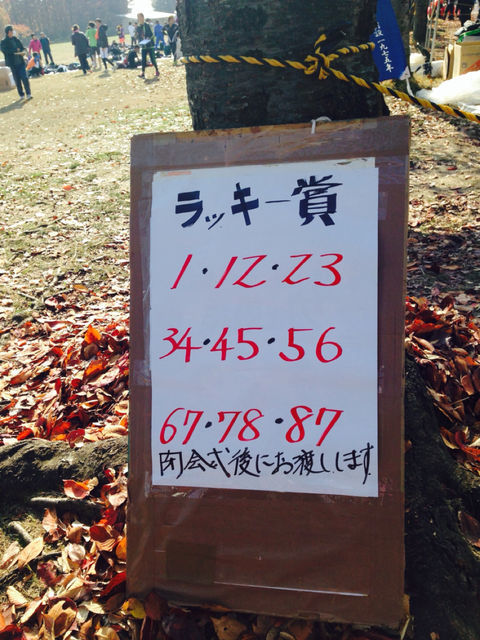 設一九七五年
ラッキー賞
1・12・23
34・45・56
67・78・87
閉会式後にお渡しします